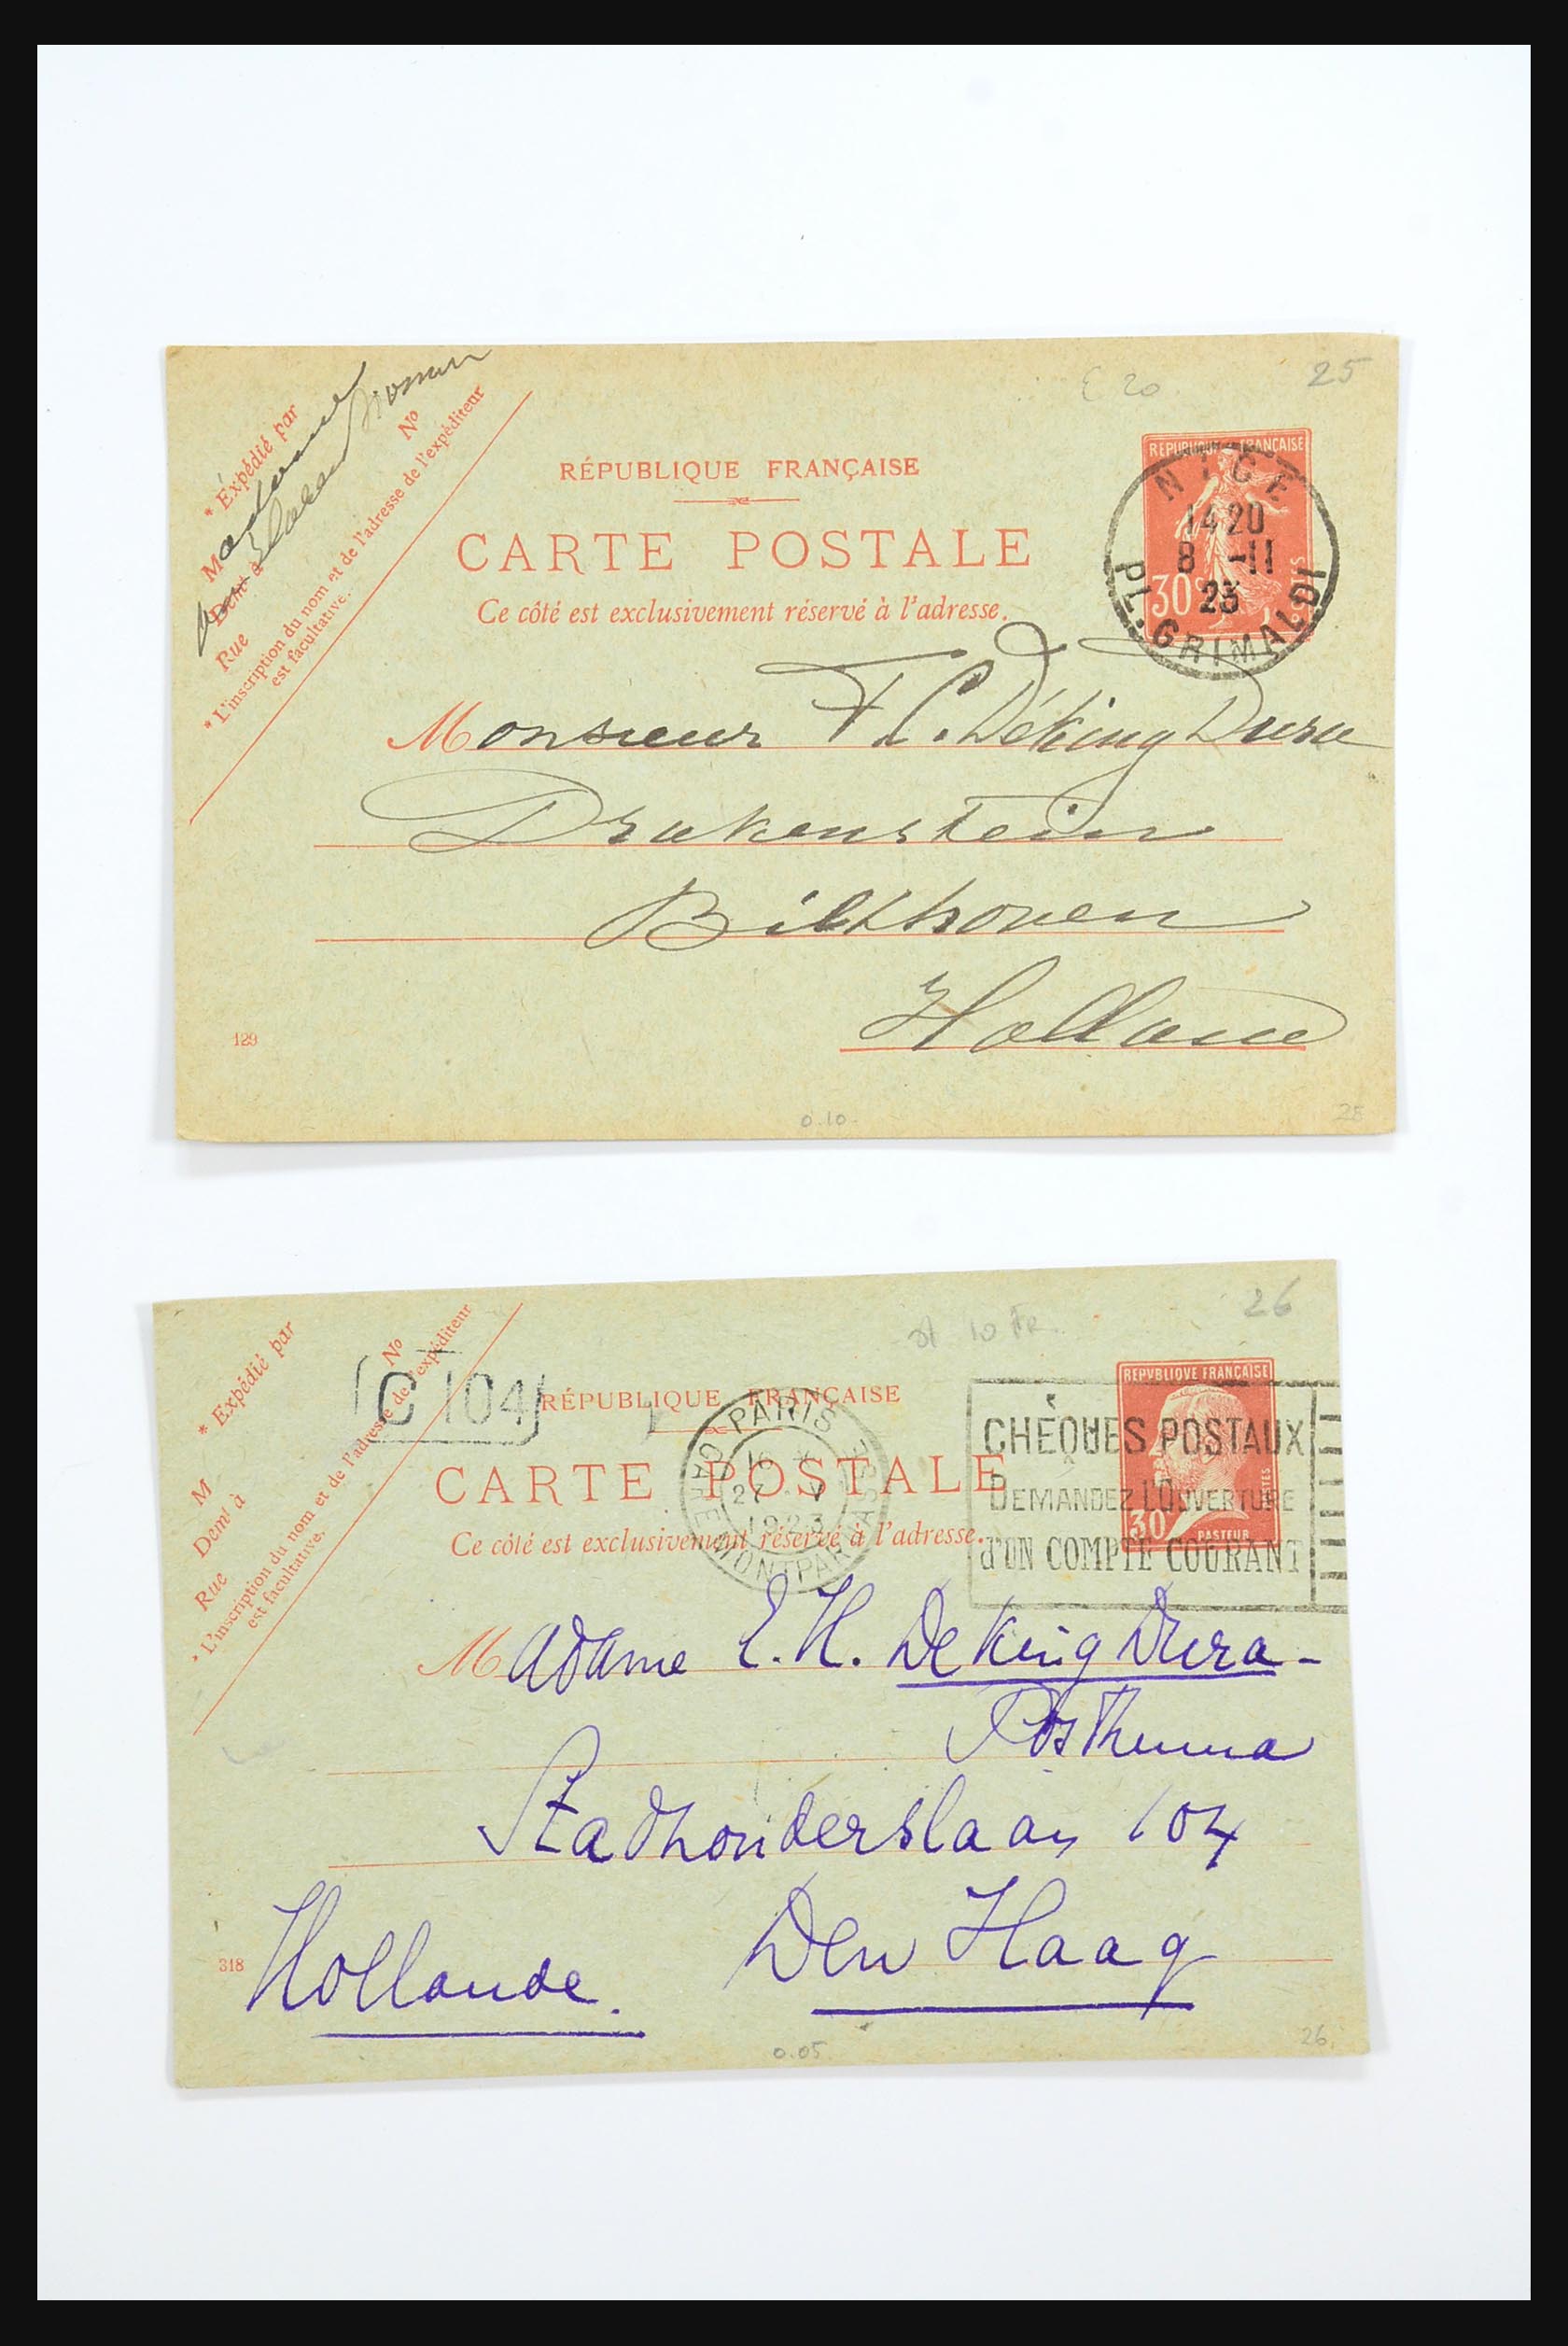 * Expédié par
Madame
Nº
M
Demt à
Rue
* L'inscription du nom et de l'adresse de l'expéditeur
est facultative.
€ 20
25
RÉPUBLIQUE FRANÇAISE
CARTE POSTALE
Ce côté est exclusivement réservé à l'adresse.
REPUBLIQUE FRANÇAISE
30 c
POSTES
NICE
14 20
8 -11
23
PL. GRIMALDI
Monsieur F C. De King Dura
Drakenstein
Bilthoven
Hollande
129
0.10
25
* Expédié par
Nº
M
Demt à
Rue
* L'inscription du nom et de l'adresse de l'expéditeur
est facultative.
C 104
10 FR.
26
RÉPUBLIQUE FRANÇAISE
CARTE POSTALE
Ce côté est exclusivement réservé à l'adresse.
PARIS
16 *
27 . V
1923
GARE MONTPARNASSE
REPVBLIQVE FRANÇAISE
30 c
POSTES
PASTEUR
CHÈQUES POSTAUX
DEMANDEZ L'OUVERTURE
d'UN COMPTE COURANT
Madame E. H. De King Dura-
Posthuma
Stadhouderslaan 104
Den Haag
Hollande.
318
0.05
26